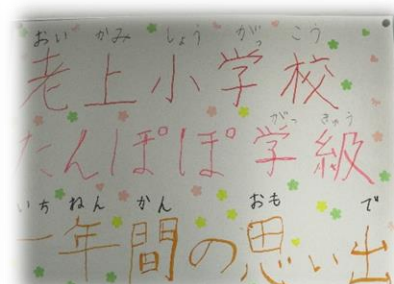 おい かみ しょう がっ こう
老上小学校
がっ きゅう
たんぽぽ学級
いち ねん かん おも で
一年間の思い出